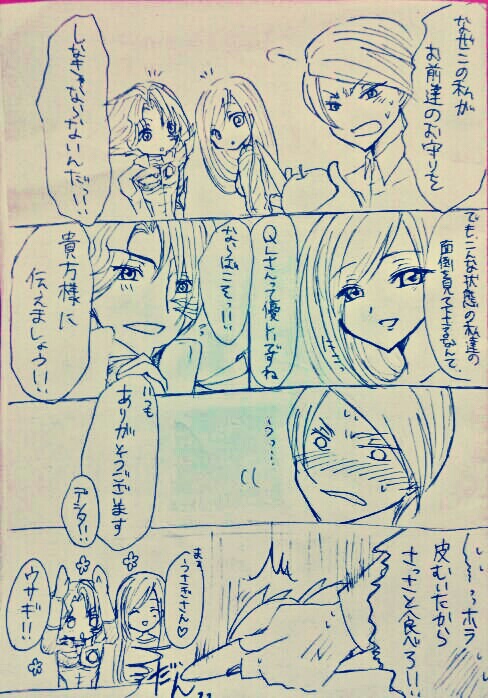 なぜこの私が
お前達のお守りを
しなきゃならないんだっ!!
でも、こんな状態の私達の
面倒を見て下さるなんて、
QLさんって優しいですね
ならばこそっ!!
貴方様に
伝えましょう!!
うっ…
いつも
ありがとうございます
アシタ!!
〜っホラ
皮むいたから
さっさと食べろ!!
まぁ
うさぎさん♡
ウサギ!!
だん